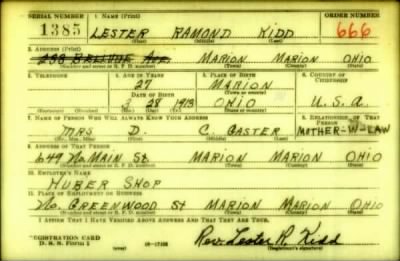 SERIAL NUMBER 1. NAME (Print) ORDER NUMBER
1385 LESTER RAMOND KIDD 666
(First) (Middle) (Last)
2. ADDRESS (Print)
238 BELLVUE AVE. MARION MARION OHIO
(Number and street or R. F. D. number) (Town) (County) (State)
3. TELEPHONE 4. AGE IN YEARS 5. PLACE OF BIRTH 6. COUNTRY OF CITIZENSHIP
27 MARION
DATE OF BIRTH (Town or county)
2 28 1913 OHIO U.S.A.
(Exchange) (Number) (Mo.) (Day) (Yr.) (State or country)
7. NAME OF PERSON WHO WILL ALWAYS KNOW YOUR ADDRESS 8. RELATIONSHIP OF THAT PERSON
MRS D. C. GASTER MOTHER-W-LAW
(Mr., Mrs., Miss) (First) (Middle) (Last)
9. ADDRESS OF THAT PERSON
649 No. MAIN St MARION MARION OHIO
(Number and street or R. F. D. number) (Town) (County) (State)
10. EMPLOYER'S NAME
HUBER SHOP
11. PLACE OF EMPLOYMENT OR BUSINESS
No. GREENWOOD St MARION MARION OHIO
(Number and street or R. F. D. number) (Town) (County) (State)
I AFFIRM THAT I HAVE VERIFIED ABOVE ANSWERS AND THAT THEY ARE TRUE.
REGISTRATION CARD
D. S. S. Form 1 (over) Rev. Lester R. Kidd
(Registrant's signature)